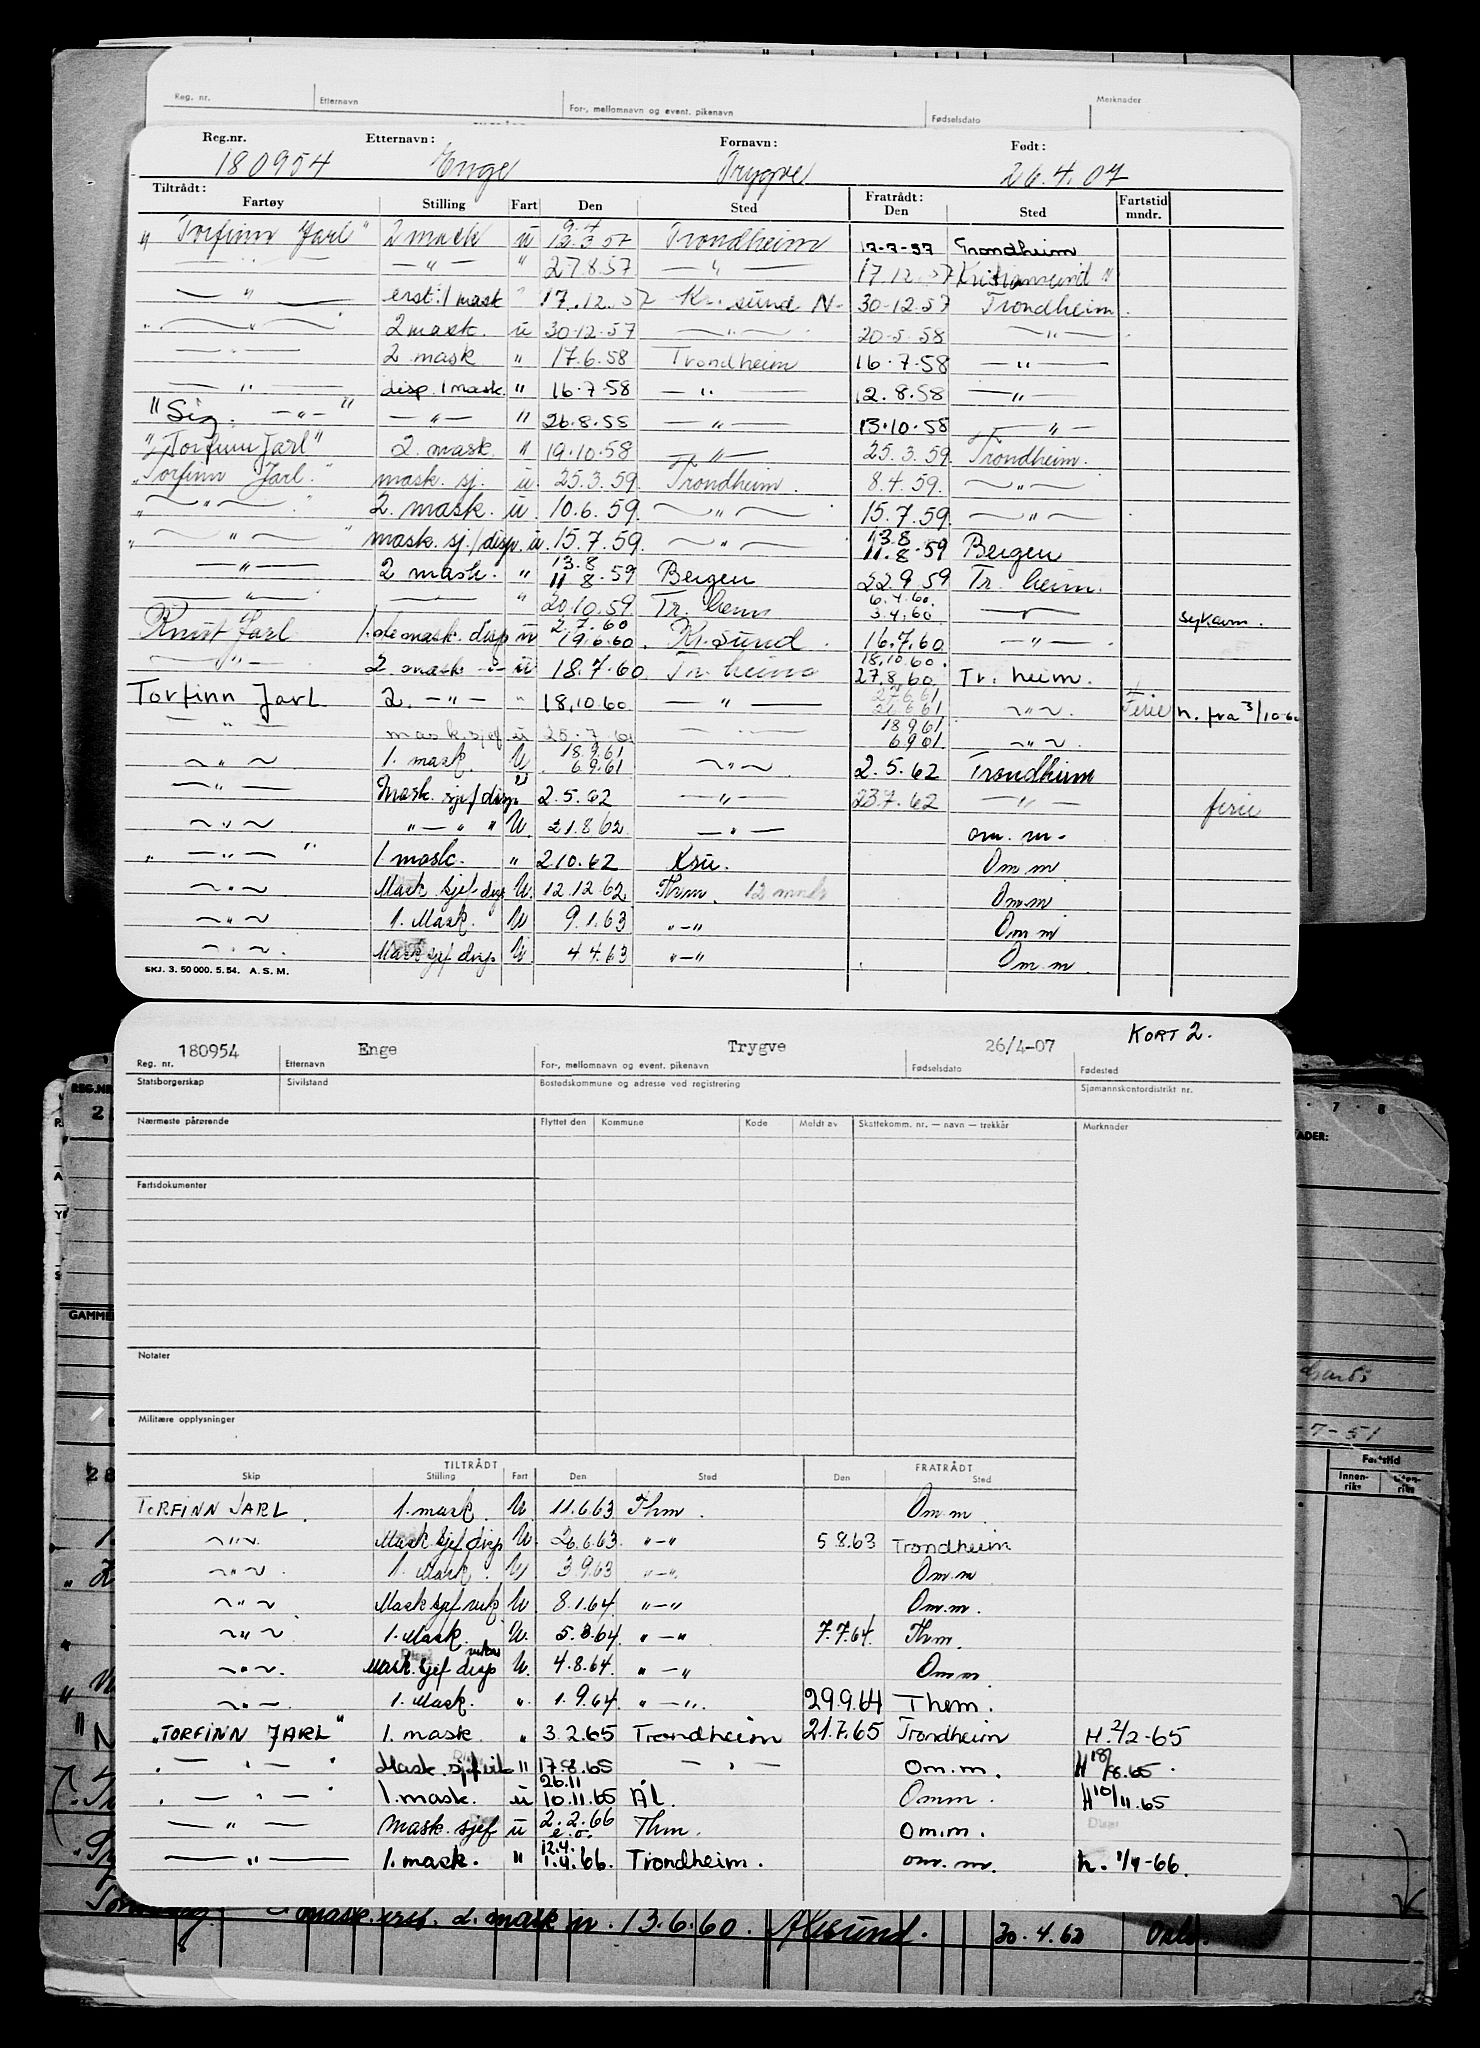 Reg. nr. Etternavn For-, mellomnavn og event. pikenavn Fødselsdato Merknader
Reg.nr. Etternavn: Fornavn: Født:
180954 Enge Trygve 26.4.07
Tiltrådt: Fratrådt:
Fartøy Stilling Fart Den Sted Den Sted Fartstid mndr.
"Torfinn Jarl" 2 mask ü 12.3.57 Trondheim 17-7-57 Trondheim
— " — " 27.8.57 — " — 17.12.57 Kristiansund N
— " — erst. 1 mask " 17.12.57 Kr.sund N- 30-12-57 Trondheim
— " — 2 mask. ü 30-12-57 — " — 20-5-58 — " —
— " — 2 mask " 17.6.58 Trondheim 16-7-58 — " —
— " — disp. 1 mask. " 16-7-58 — " — 12.8.58 — " —
"Sig. — " — " — " — " 26.8.58 — " — 13.10.58 — " —
"Torfinn Jarl" 2. mask. " 19.10.58 — " — 25.3.59. Trondheim.
"Torfinn Jarl." mask. sj. ü. 25.3.59 Trondheim. 8.4.59. — " —
" — " — " 2. mask. ü. 10.6.59. — " — 15.7.59. — " —
" — " — " mask. sj./disp. ü. 15.7.59. — " — 13.8 11.8.59 Bergen
— " — 2 mask. " 13.8 11 8.59 Bergen 22.9.59 Tr. heim.
— " — — " 20.10.59. Tr. heim 6.4.60. 3.4.60 — " — sykavm.
Knut Jarl 1.ste mask. disp ü 2.7.60 19.6.60. Kr.sund. 16.7.60 — " —
— " — 2. mask ü 18.7.60 Tr. heim 18.10.60. 27.8.60. Tr. heim.
Torfinn Jarl 2. — " — " 18.10.60 — " — 27.6.61 21.6.61 — " — Ferie h. fra 3/10-60
— " — mask.sjef ü 25.7.61 — " — 18.9.61 6.9.61 — " —
— " — 1. mask. U. 18.9.61 6.9.61 — " — 2.5.62 Trondheim
— " — Mask. sjef disp " 2.5.62 — " — 23.7.62 — " — ferie
— " — " — " " U. 21.8.62 — " — om. m.
" — " — " 1. mask. " 2.10.62 Ksu. Om m
— " — Mask. sjef disp U. 12.12.62 Thm. 12 mndr Om.m
— " — 1. Mask. U 9.1.63 " — " Om m
— " —. Mask sjef disp U. 4 4.63 " — " Om.m
SKJ. 3. 50 000. 5. 54. A. S. M.
KORT 2.
180954 Enge Trygve 26/4-07
Reg. nr. Etternavn For-, mellomnavn og event. pikenavn Fødselsdato Fødested
Statsborgerskap Sivilstand Bostedskommune og adresse ved registrering Sjømannskontordistrikt nr.
Nærmeste pårørende Flyttet den Kommune Kode Meldt av Skattekomm. nr. — navn — trekkår Merknader
Fartsdokumenter
Notater
Militære opplysninger
TILTRÅDT FRATRÅDT
Skip Stilling Fart Den Sted Den Sted
TORFINN JARL. 1. mask. U. 11.6.63 Thm. Om.m.
— " — Mask. sjef disp U. 26.6.63. " — " 5.8.63 Trondheim
— " — 1. Mask. U 3.9.63 " — " Om.m
— " — Mask sjef vik U. 8.1.64. " — " Om.m.
— " — 1. Mask. U. 5.3.64. " — " 7.7.64. Thm.
— " —. Mask. sjef disp U. 4.8.64. " — " Om m
— " — 1. Mask. ". 1.9.64. " — ". 29.9.64 Thm.
"TORFINN JARL" 1. mask. " 3.2.65 Trondheim 21.7.65 Trondheim H. 2/2-65
— " — Mask. sjef vik " 17.8.65 — " — om.m. H 18/8.65.
— " — 1. mask. ü 26.11 10.11.65 ÅL. Omm. H 10/11.65
— " — mask. sjef ü 2.2.66 e.o. Thm. om.m.
— " — 1. mask. " 12.4. 1.4.66. Trondheim. om.m. h. 1/4-66.
mask. erst. 2. mask n. 13.6.60. Ålesund. 30.4.62 Oslo.
REG.NR
GAMME
7 - 8
ADER:
-7-51
Fartstid
Innenriks